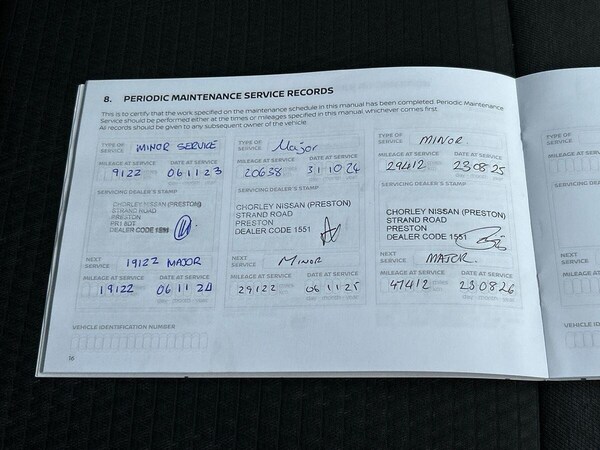 8. PERIODIC MAINTENANCE SERVICE RECORDS
This is to certify that the work specified on the maintenance schedule in this manual has been completed. Periodic Maintenance
Service should be performed either at the times or mileages specified in this manual whichever comes first.
All records should be given to any subsequent owner of the vehicle.
TYPE OF SERVICE MINOR SERVICE
MILEAGE AT SERVICE DATE AT SERVICE
9122 06 11 23
SERVICING DEALER'S STAMP
CHORLEY NISSAN (PRESTON)
STRAND ROAD
PRESTON
PR1 8UT
DEALER CODE 1551
NEXT SERVICE 19122 MAJOR
MILEAGE AT SERVICE DATE AT SERVICE
19122 06 11 24
TYPE OF SERVICE Major
MILEAGE AT SERVICE DATE AT SERVICE
20638 31 10 24
SERVICING DEALER'S STAMP
CHORLEY NISSAN (PRESTON)
STRAND ROAD
PRESTON
DEALER CODE 1551
NEXT SERVICE MINOR
MILEAGE AT SERVICE DATE AT SERVICE
29122 06 11 25
day month year
TYPE OF SERVICE MINOR
MILEAGE AT SERVICE DATE AT SERVICE
29412 23 08 25
SERVICING DEALER'S STAMP
CHORLEY NISSAN (PRESTON)
STRAND ROAD
PRESTON
DEALER CODE 1551
NEXT SERVICE MAJOR
MILEAGE AT SERVICE DATE AT SERVICE
47412 23 08 26
day month year
VEHICLE IDENTIFICATION NUMBER
16
TYPE OF SERVICE
MILEAGE
SERVICING
NEXT SERVICE
MILEAGE
VEHICLE